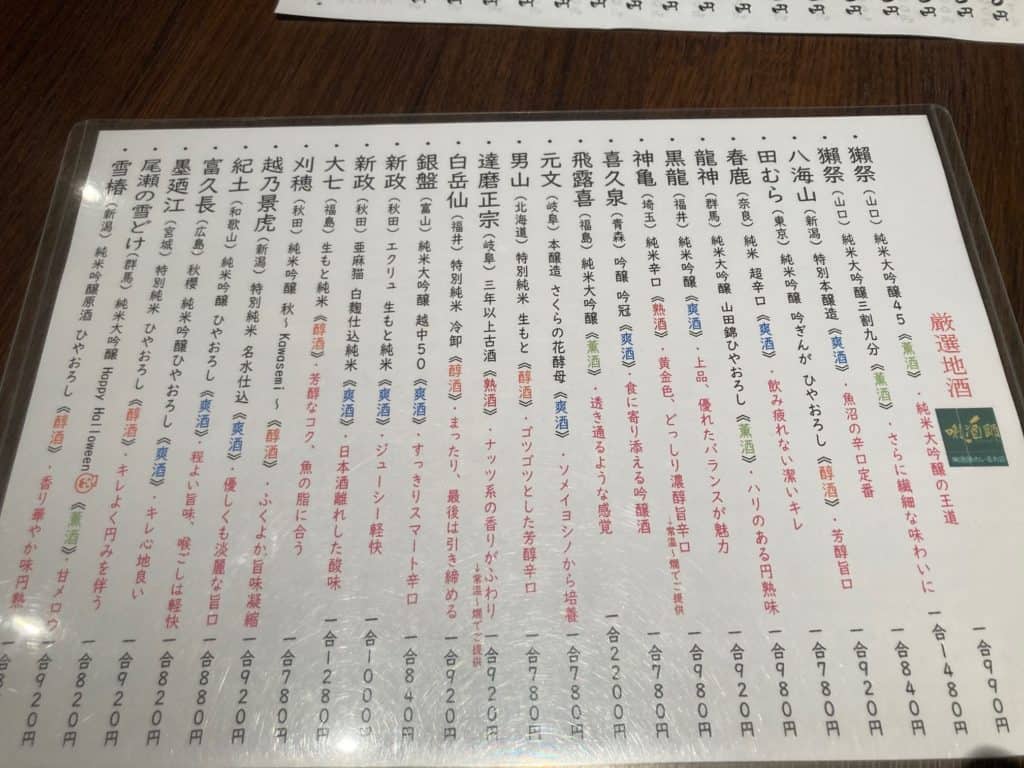 厳選地酒
・獺祭（山口）純米大吟醸45《薫酒》・純米大吟醸の王道 一合990円
・獺祭（山口）純米大吟醸三割九分《薫酒》・さらに繊細な味わいに 一合1480円
・八海山（新潟）特別本醸造《爽酒》・魚沼の辛口定番 一合840円
・田むら（東京）純米吟醸 吟ぎんが ひやおろし《醇酒》・芳醇旨口 一合920円
・春鹿（奈良）純米 超辛口《爽酒》・飲み疲れない潔いキレ 一合780円
・龍神（群馬）純米大吟醸 山田錦ひやおろし《薫酒》・ハリのある円熟味 一合980円
・黒龍（福井）純米吟醸《爽酒》・上品、優れたバランスが魅力 一合920円
・神亀（埼玉）純米辛口《熟酒》・黄金色、どっしり濃醇旨辛口 一合980円
→常温〜燗でご提供
・喜久泉（青森）吟醸 吟冠《爽酒》・食に寄り添える吟醸酒 一合780円
・飛露喜（福島）純米大吟醸《薫酒》・透き通るような感覚 一合2200円
・元文（岐阜）本醸造 さくらの花酵母《爽酒》・ソメイヨシノから培養 一合780円
・男山（北海道）特別純米 生もと《醇酒》・ゴツゴツとした芳醇辛口 一合780円
・達磨正宗（岐阜）三年以上古酒《熟酒》・ナッツ系の香りがふわり 一合920円
→常温〜燗でご提供
・白岳仙（福井）特別純米 冷卸《醇酒》・まったり、最後は引き締める 一合920円
・銀盤（富山）純米大吟醸 越中50《爽酒》・すっきりスマート辛口 一合840円
・新政（秋田）エクリュ 生もと純米《爽酒》・ジューシー軽快 一合1000円
・新政（秋田）亜麻猫 白麹仕込純米《爽酒》・日本酒離れした酸味 一合1280円
・大七（福島）生もと純米《醇酒》・芳醇なコク、魚の脂に合う 一合780円
・刈穂（秋田）純米吟醸 秋〜Kawasemi〜《醇酒》・ふくよか旨味凝縮 一合920円
・越乃景虎（新潟）特別純米 名水仕込《爽酒》・優しくも淡麗な旨口 一合880円
・紀土（和歌山）純米吟醸 ひやおろし《爽酒》・程よい旨味、喉ごしは軽快 一合920円
・富久長（広島）秋櫻 純米吟醸ひやおろし《爽酒》・キレ心地良い 一合820円
・墨廼江（宮城）特別純米 ひやおろし《醇酒》・キレよく円みを伴う 一合920円
・尾瀬の雪どけ（群馬）純米大吟醸 Happy Holloween《薫酒》・甘メロウ
・雪椿（新潟）純米吟醸原酒 ひやおろし《醇酒》・香り華やか味円熟